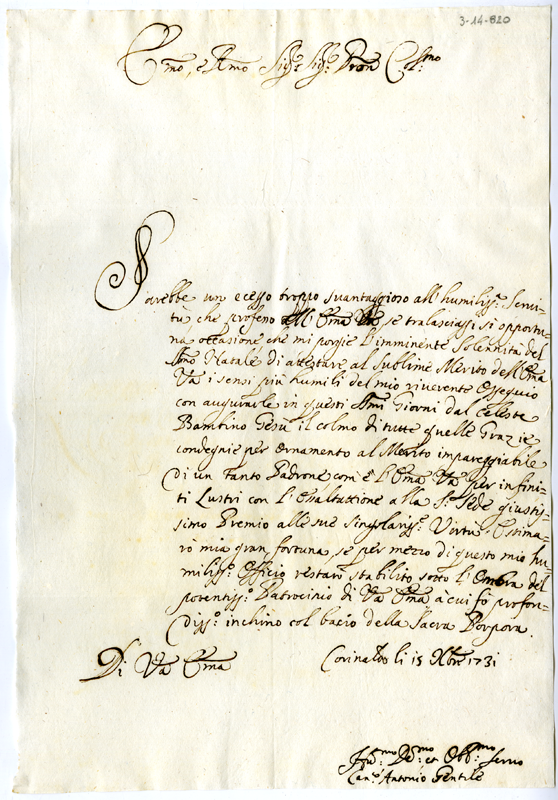 3-14-820
Emo, e Rmo Sigr. Sigr. Pron Colmo
Sarebbe un ecesso troppo suantaggioso all' humiliss: Serui-
tù, che profeno all' Ema Va se tralasciassi si opportu-
na occasione che mi porgie l'imminente Solennità del
Smo Natale di attestare al sublime Merito dell' Ema
Va i sensi più humili del mio riuerente Ossequio
con augurarle in questi Smi Giorni dal Celeste
Bambino Gesù il colmo di tutte quelle Grazie
condegnie per ornamento al Merito impareggiabile
di un tanto Padrone com'è l'Ema Va per infini-
ti Lustri con l'Esaltazione alla Sa. Sede giustis-
simo Premio alle sue singolariss: Virtù. Estima-
rò mia gran fortuna, se per mezzo di questo mio hu-
miliss: officio restarò stabilito sotto l'Ombra del
potentiss: Patrocinio di Va Ema à cui fò profon-
diss: inchino col bacio della Sacra Porpora.
Di Va Ema
Corinaldo li 15 Xbre 1731
Humo: Demo: et Obbmo: Seruo
Canco Antonio Gentile